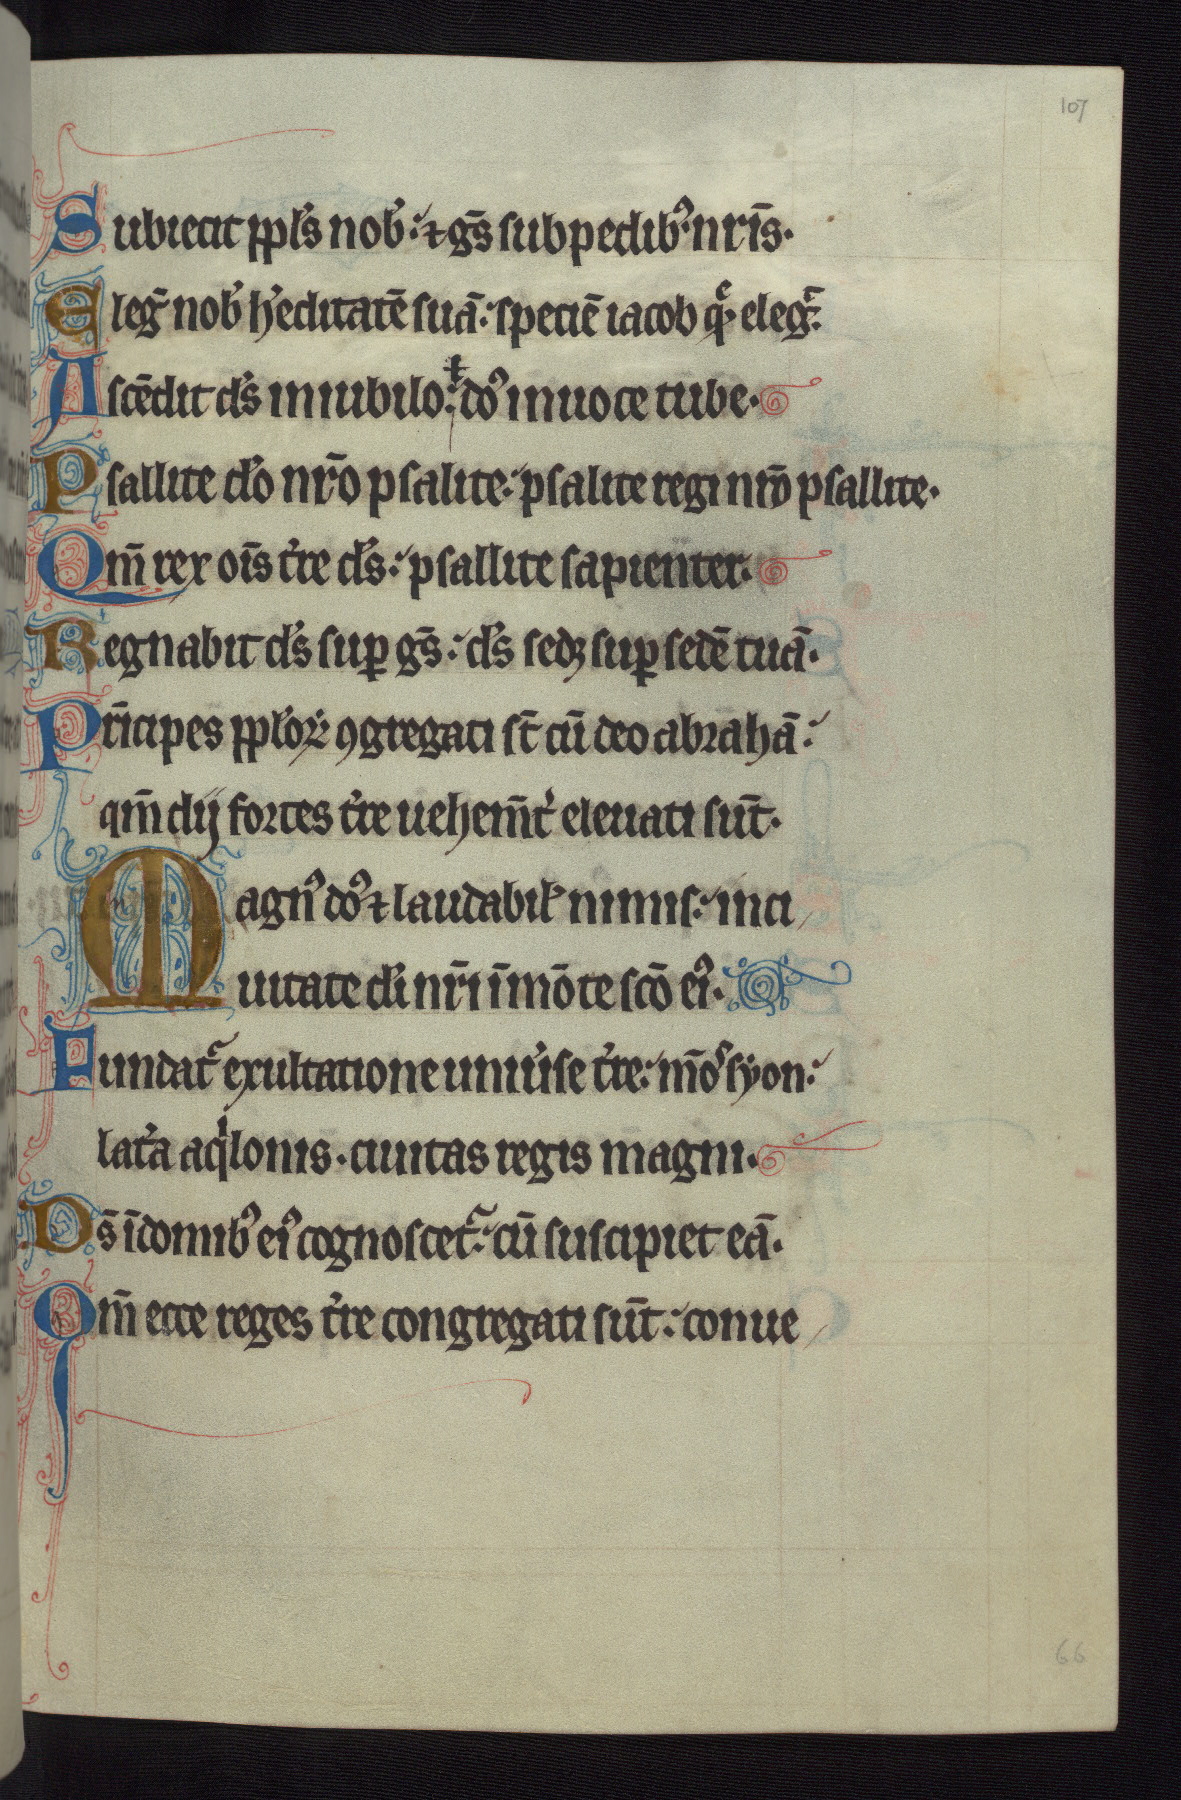 107
Subiecit ppl's nob':́ ⁊ gn̄s sub pedib9 nr̄is.
Eleg̃ nob' h'editatē suā:́ speciē iacob qͤ eleg̃.
Ascēdit ds̄ in iubilo:́ ⁊ do9 in uoce tube.
Psallite do nr̄o psalite:́ psalite regi nr̄o psallite.
Qm̄ rex oīs tr̄e ds̄:́ psallite sapienter.
Regnabit ds̄ sup̱ gn̄s:́ ds̄ sedꝫ sup̱ sedē tuā.
Pr̄icipes pploꝝ ꝯgregati st̄ cū deo abrahā:́
qm̄ dij fortes tr̄e uehem̄t' eleuati sūt.
Magn9 do9 ⁊ laudabil' nimis:́ in ci
uitate di nr̄i ī mōte scō ei9.
Fundat᷑ exultatione uniu'se tr̄e:́ mōs syon:́
lat'a aqͥlonis. ciuitas regis magni.
Ds̄ ī domib9 ei9 cognoscet᷑:́ cū suscipiet eā.
Qm̄ ecce reges tr̄e congregati sūt:́ conue
66